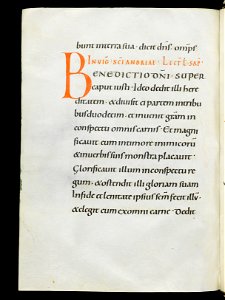 bunt in terra sua · dicit dn̄s omp̄s
IN UIG̅ SC̅I ANDRIAE · LECT̅ L· SAP̅
BENEDICTIO DN̅I SUPER
caput iusti · Ideo dedit illi here
ditatem · & diuisit ei partem in tribu
bus duodecim · et inuenit gr̄am in
conspectu omnis carnis · Et magni
ficauit eum in timore inimicorū
& in uerbis suis monstra placauit
Glorificauit illum in conspectu re
gum · & ostendit illi gloriam suam
In fide et lenitate ipsius sc̄m fecit illū
& elegit eum ex omni carne · Dedit